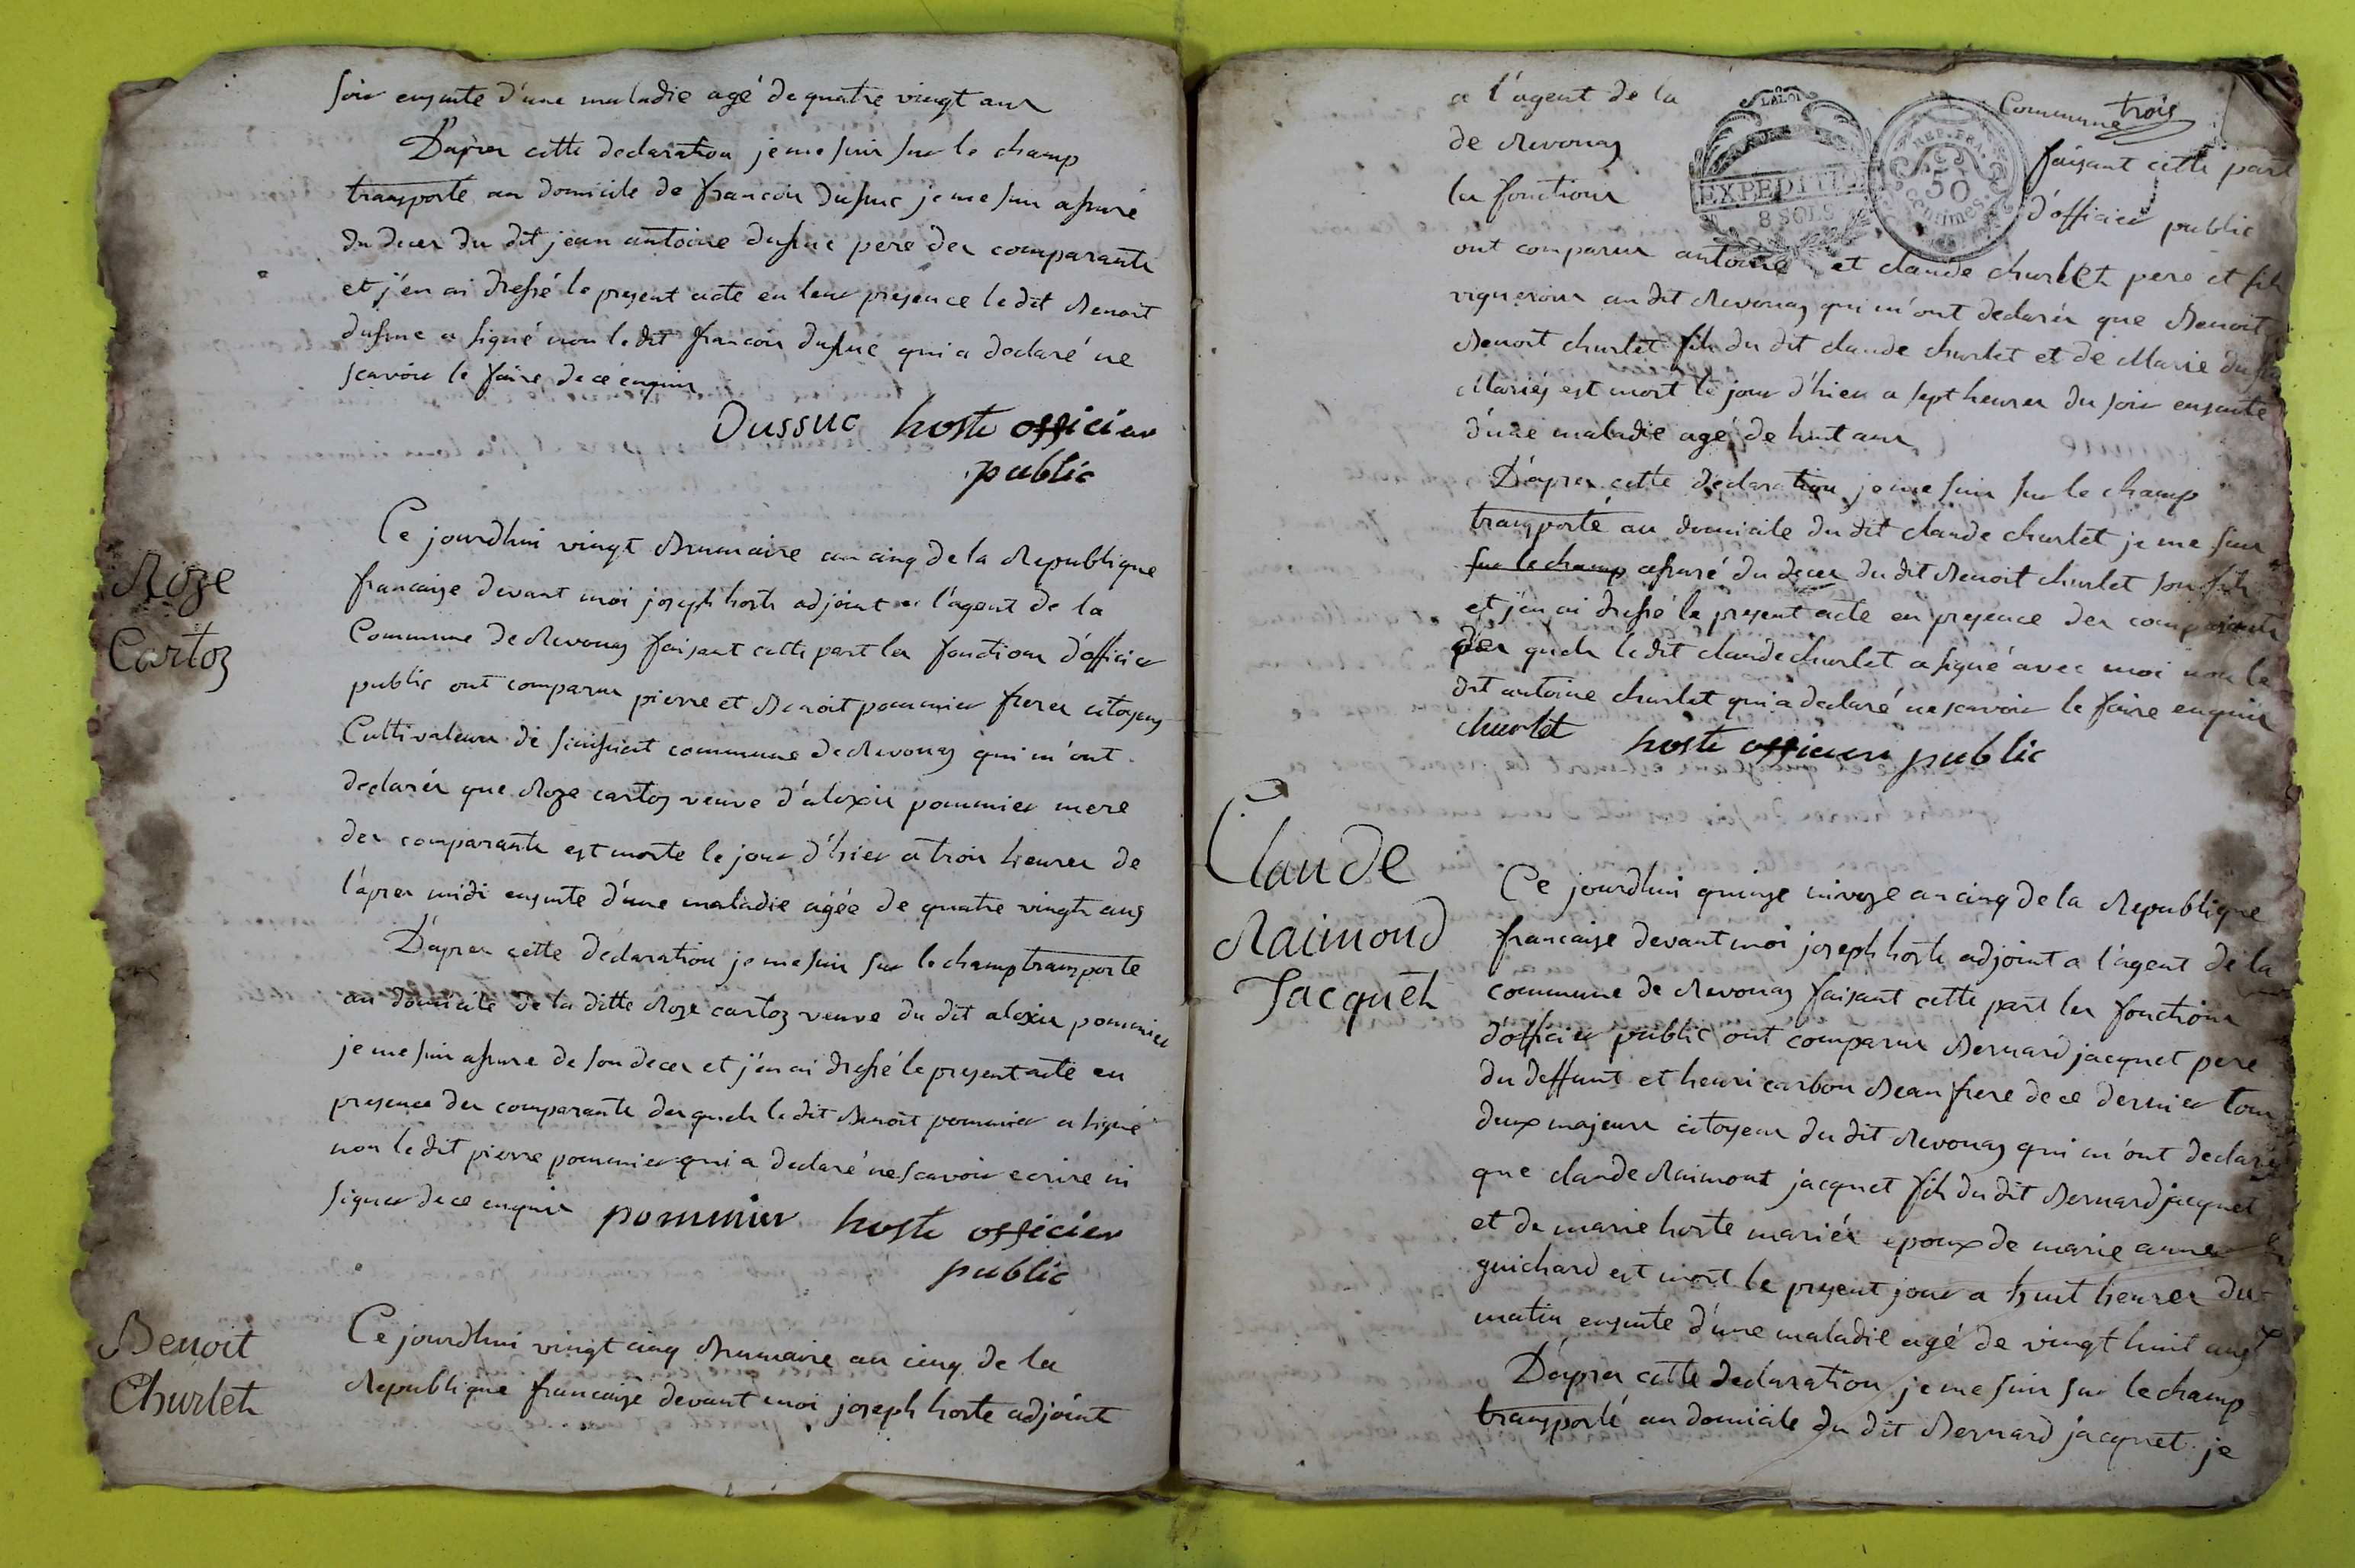 soir ensuite d'une maladie agé de quatre vingt ans
D'apres cette declaration je me suis sur le champ
transporte au domicile de francois dussuc je me suis assuré
du deces du dit jean antoine dussuc pere des comparants
et j'en ai dressé le present acte en leur presence le dit Benoit
dussuc a signé non le dit francois dussuc qui a declaré ne
scavoir le faire de ce enquis
Dussuc hoste officier
public
Roze
Cartoz
Ce jourdhui vingt Brumaire an cinq de la Republique
francaise devant moi joseph hoste adjoint a l'agent de la
Commune de Revonas faisant cette part les fonctions d'officier
public ont comparus pierre et Benoit pommier freres citoyens
Cultivateurs de commune de Revonas qui m'ont
declarés que Roze cartoz veuve d'alexis pommier mere
des comparants est morte le jour d'hier a trois heures de
l'apres midi ensuite d'une maladie agée de quatre vingts ans
D'apres cette declaration je me suis sur le champ transporte
au domicile de la ditte Roze cartoz veuve du dit alexis pommier
je me suis assure de son deces et j'en ai dressé le present acte en
presence des comparants des quels le dit Benoit pommier a signé
non le dit pierre pommier qui a declaré ne scavoir ecrire ni
signer de ce enquis pommier hoste officier
public
Benoit
Churlet
Ce jourdhui vingt cinq Brumaire an cinq de la
Republique francaise devant moi joseph hoste adjoint
trois
a l'agent de la Commune
de Revonas faisant cette part
les fonctions d'officier public
LA LOI
EXPEDITIO
8 SOLS
REP. FRA.
50
centimes
ont comparus antoine et claude churlet pere et fils
vignerons au dit Revonas qui m'ont declarés que Benoit
Benoit churlet fils du dit claude churlet et de Marie
Mariés est mort le jour d'hier a sept heures du soir ensuite
d'une maladie agé de huit ans
D'apres cette declaration je me suis sur le champ
transporté au domicile du dit claude churlet je me suis
sur le champ assuré du deces du dit Benoit churlet son fils
et j'en ai dressé le present acte en presence des comparants
des quels le dit claude churlet a signé avec moi non le
dit antoine churlet qui a declaré ne scavoir le faire enquis
churlet hoste officier public
Claude
Raimond
Jacquet
Ce jourdhui quinze nivoze an cinq de la Republique
francaise devant moi joseph hoste adjoint a l'agent de la
commune de Revonas faisant cette part les fonctions
d'officier public ont comparus Bernard jacquet pere
du deffunt et henri carbon Beau frere de ce dernier tous
deux majeurs citoyens du dit Revonas qui m'ont declarés
que claude Raimont jacquet fils du dit Bernard jacquet
et de marie hoste mariés epoux de marie anne
guichard est mort le present jour a huit heures du
matin ensuite d'une maladie agé de vingt huit ans
D'apres cette declaration je me suis sur le champ
transporté au domicile du dit Bernard jacquet je